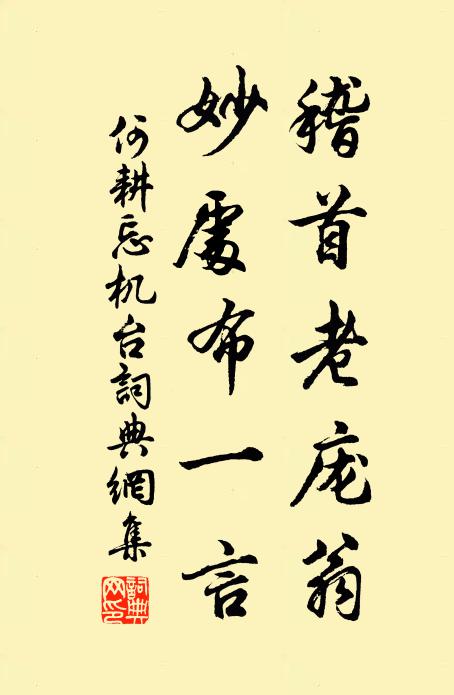 稽首老庞翁
妙處布一言
何耕忘机台詞典網集
詞典
网印